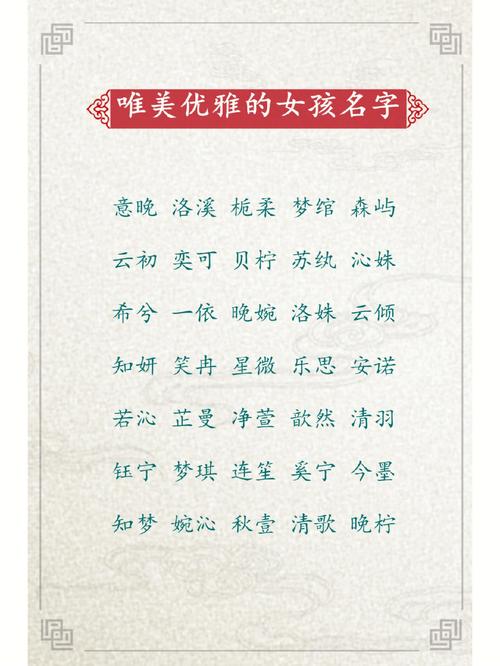 唯美优雅的女孩名字
意晚 洛溪 栀柔 梦绾 森屿
云初 奕可 贝柠 苏纨 沁姝
希兮 一依 晚婉 洛姝 云倾
知妍 笑冉 星微 乐思 安诺
若沁 芷曼 净萱 歆然 清羽
钰宁 梦琪 连笙 奚宁 今墨
知梦 婉沁 秋壹 清歌 晚柠